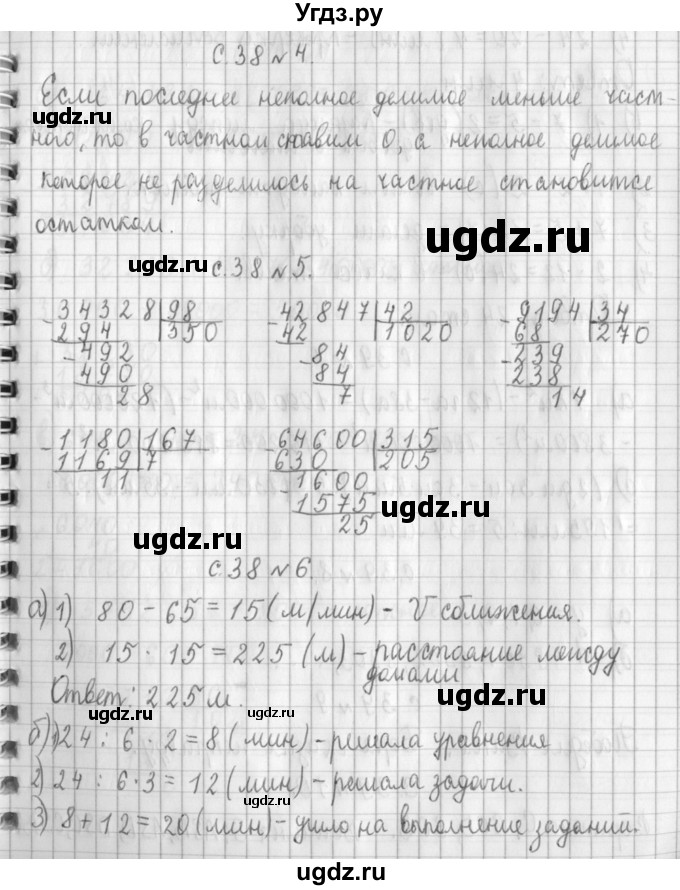 Угдз.ру
с.38 №4.
Если последнее неполное делимое меньше част-
ного, то в частном ставим 0, а неполное делимое
которое не разделилось на частное становится
остатком.
ugdz.ru
ugdz.ru
ugdz.ru
с.38 №5.
34328 98 42847 42 9194 34
294 350 42 1020 68 270
492 84 239
490 84 238
28 7 14
1180 167 64600 315
1169 7 630 205
11 1600
1575
25
ugdz.ru
ugdz.ru
с.38 №6.
а) 1) 80 - 65 = 15 (м/мин) - V сближения.
2) 15 · 15 = 225 (м) - расстояние между
домами
Ответ: 225 м.
ugdz.ru
ugdz.ru
ugdz.ru
б) 1) 24 : 6 · 2 = 8 (мин) - решала уравнения
2) 24 : 6 · 3 = 12 (мин) - решала задачи.
ugdz.ru
3) 8 + 12 = 20 (мин) - ушло на выполнение заданий.
ugdz.ru
ugdz.ru